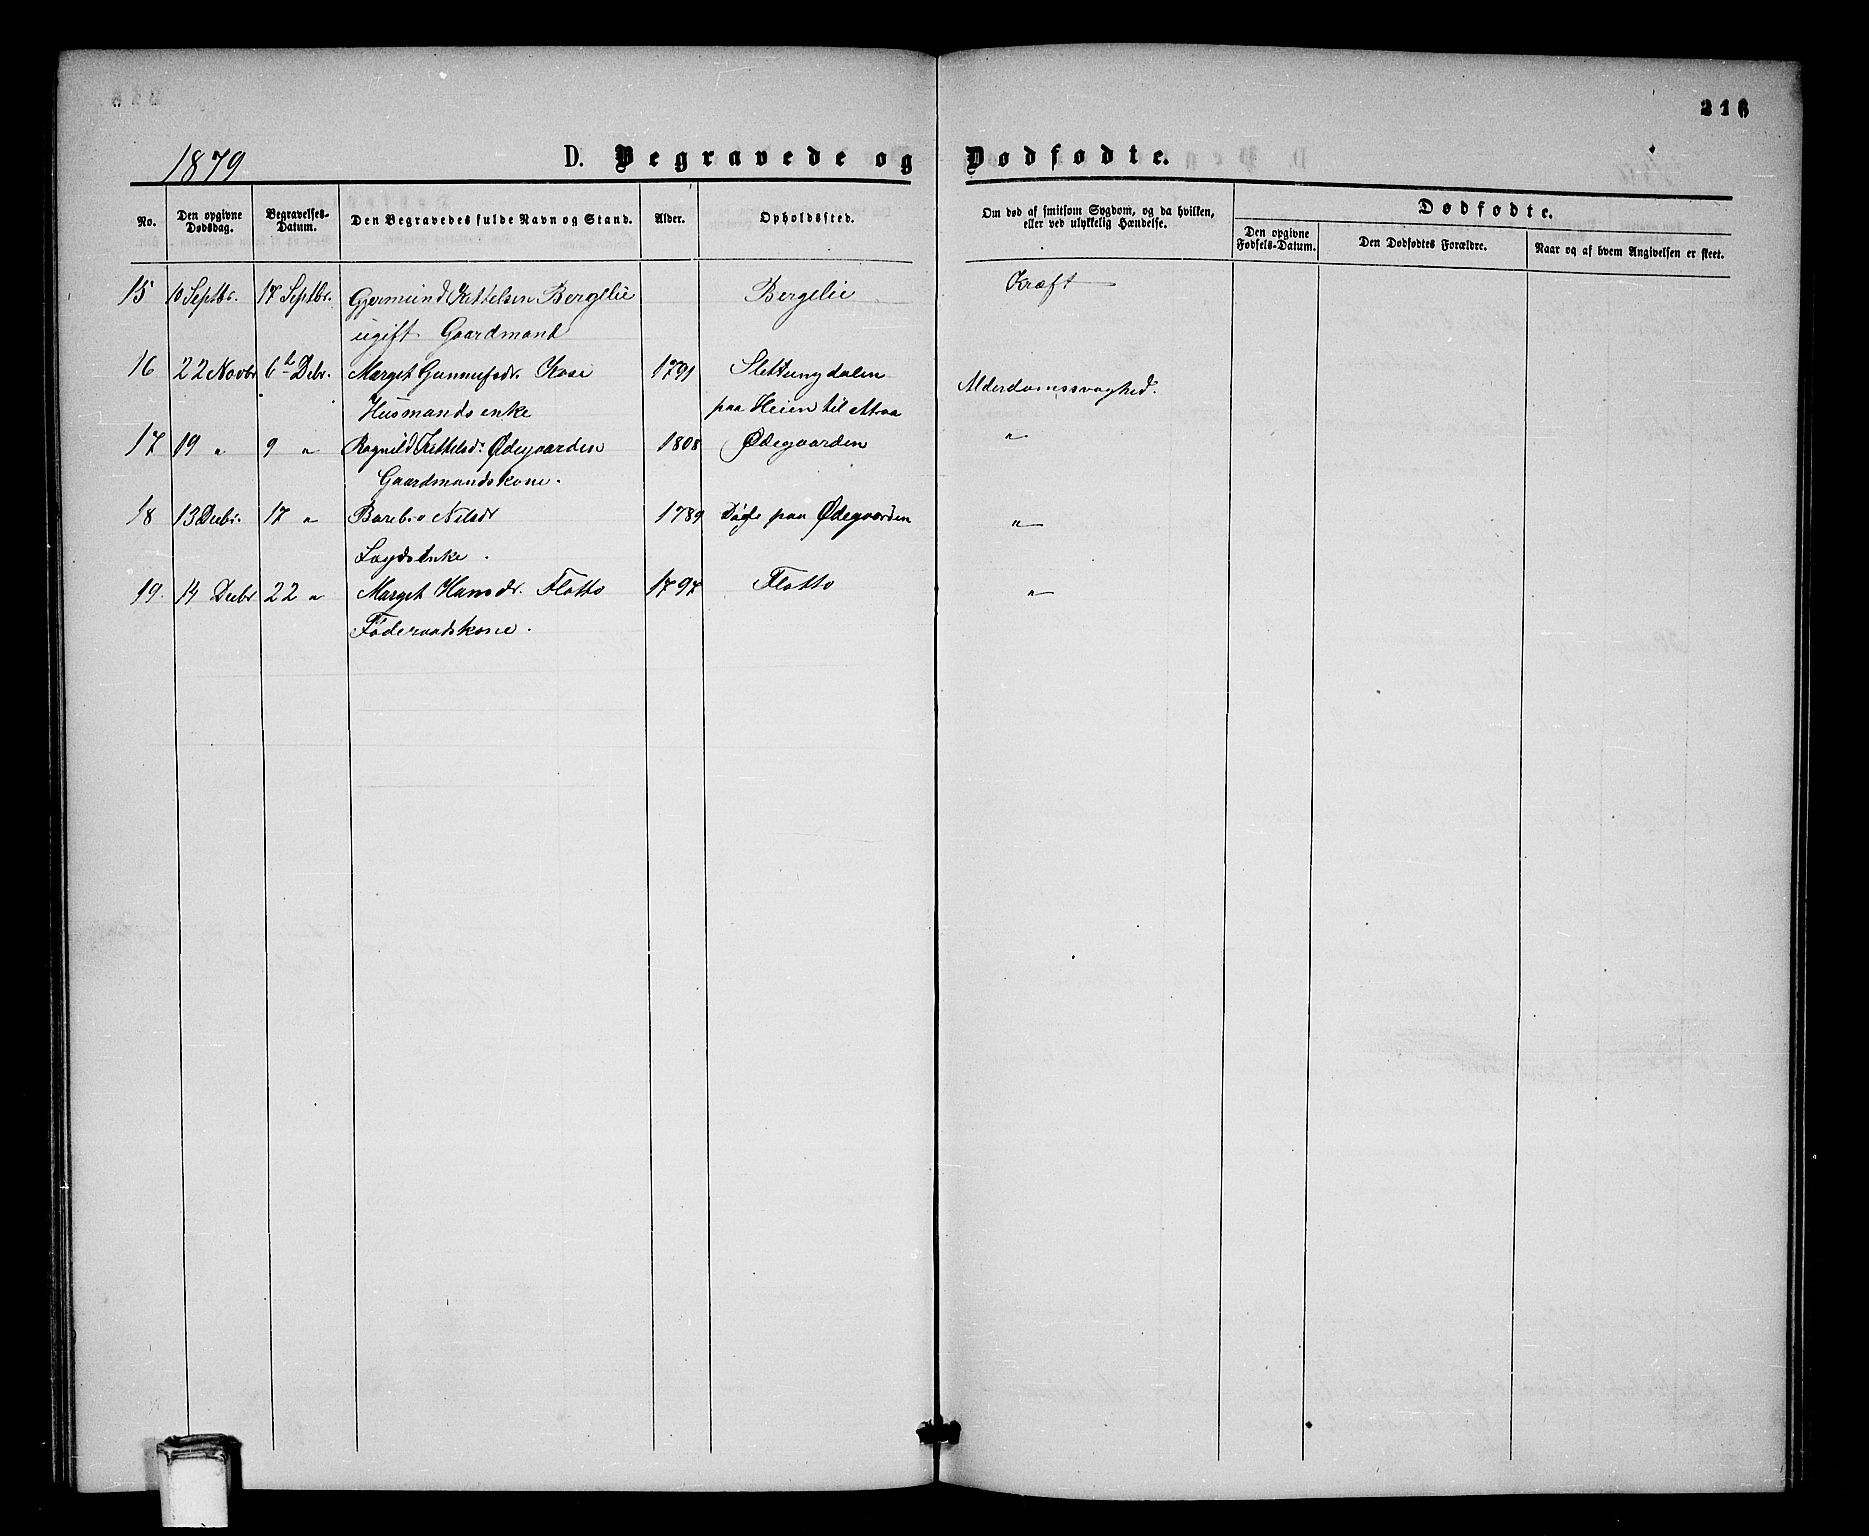 216
1879 D. Begravede og Dødfødte.
No. Den opgivne Dødsdag. Begravelses-Datum. Den Begravedes fulde Navn og Stand. Alder. Opholdssted. Om død af smitsom Sygdom, og da hvilken, eller ved ulykkelig Hændelse. Dødfødte.
Den opgivne Fødsels-Datum. Den Dødfødtes Forældre. Naar og af hvem Angivelsen er skeet.
15 10 Septbr. 17 Septbr. Gjermund Kittelsen Bergelie Bergelie Kræft
ugift Gaardmand
16 22 Novbr 6te Debr. Marget Gunnufsdr. Kose 1791 Slettungdalen Alderdomssvaghed.
Husmands enke paa Heien til
17 19 " 9 " Ragnild Kittelsdr. Ødegaarden 1808 Ødegaarden "
Gaardmandskone.
18 13 Debr. 17 " Barebro Nilsdr 1789 paa Ødegaarden "
Lægdsenke.
19. 14 Debr 22 " Marget Hansdr. Flatto 1797 Flatto "
Føderaadskone.